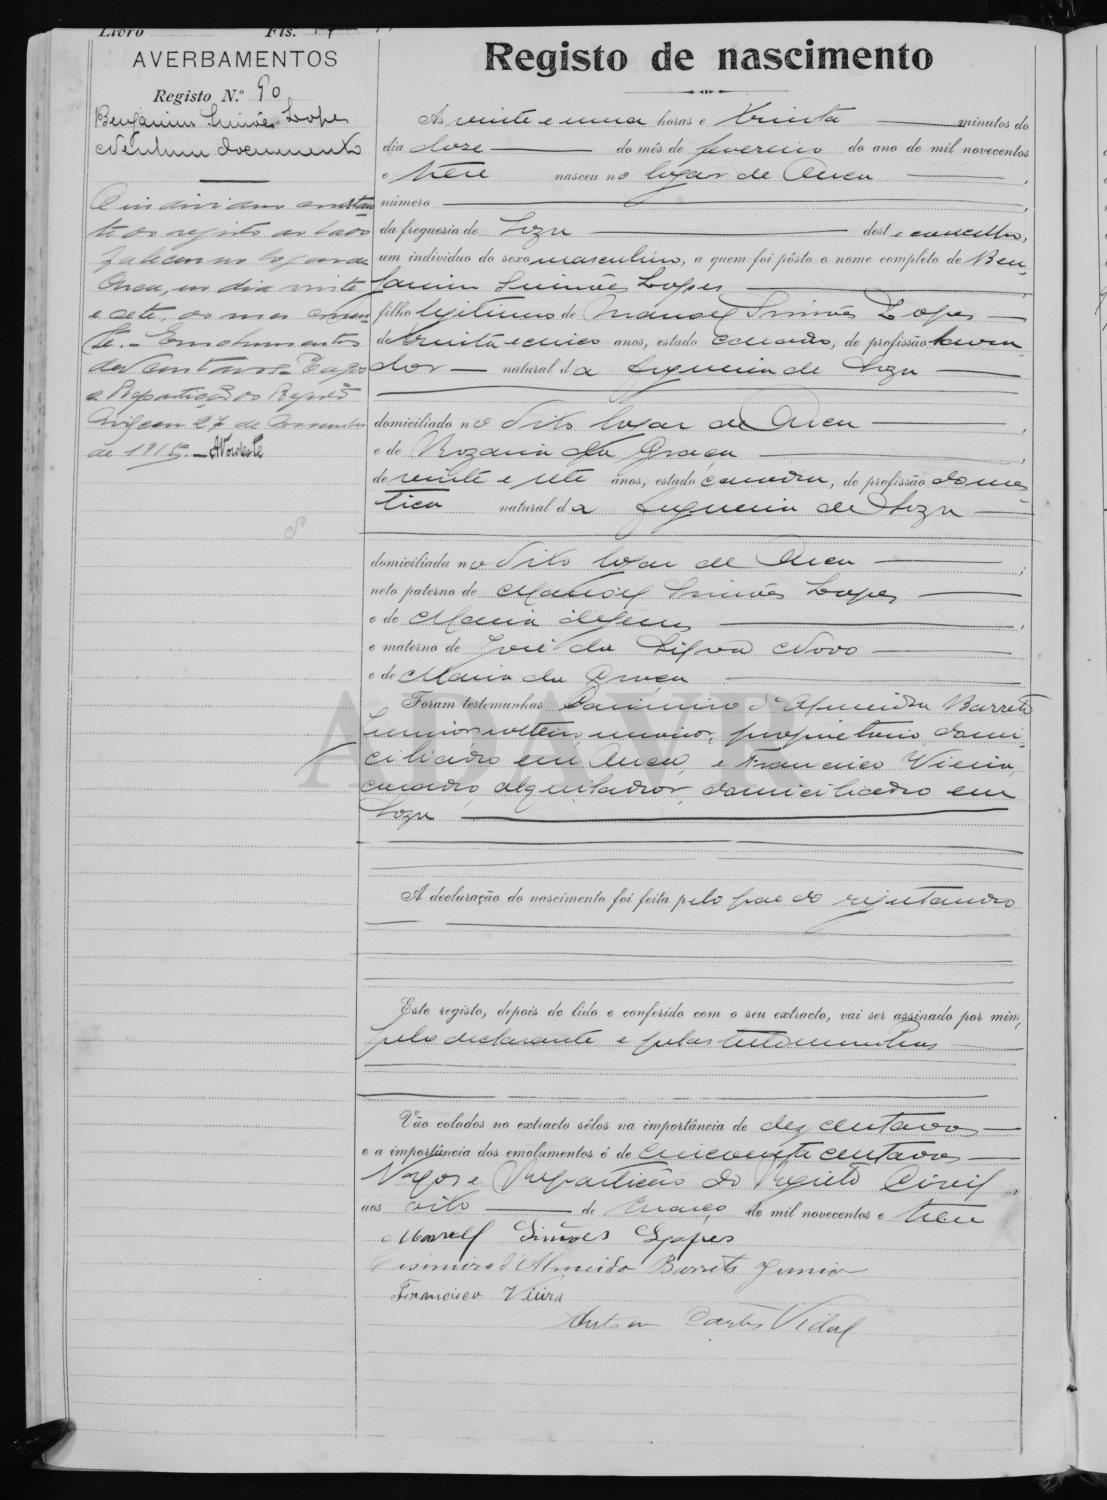 Livro Fls.
AVERBAMENTOS
Registo N.º 90
Benjamim Simões Lopes
Nenhum documento
O individuo constan
te do registo ao lado
faleceu no logar de
em dia vinte
e sete, do mes corren
te. - Emolumentos
centavos. Pagos
a Repartição do Registo
Civil em 27 de
de 1915.
Registo de nascimento
Ás vinte e uma horas e trinta minutos do
dia doze do mês de fevereiro do ano de mil novecentos
e treze nasceu no logar de
número
da freguesia de Soza deste concelho,
um individuo do sexo masculino, a quem foi pôsto o nome completo de Ben
jamim Simões Lopes
filho legitimo de Manoel Simões Lopes
de trinta e cinco anos, estado casado, de profissão lavra
dor natural da freguesia de Soza
domiciliado no dito logar de
e de Rozaria da Graça
de vinte e sete anos, estado casada, de profissão domes
tica natural da freguesia de Soza
domiciliada no dito logar de
neto paterno de Manoel Simões Lopes
e de Maria de Jesus
e materno de José da Silva Novo
e de Maria da Graça
Foram testemunhas Casimiro d'Almeida Barreto
Junior, solteiro, maior, proprietario, domi
ciliado em e Francisco Vieira,
casado, alquilador, domiciliado em
Soza
ADAVR
A declaração do nascimento foi feita pelo pae do registando
Este registo, depois de lido e conferido com o seu extracto, vai ser assinado por mim,
pelo declarante e pelas testemunhas
Vão colados no extracto sêlos na importância de dez centavos
e a importância dos emolumentos é de cincoenta centavos
Vagos e Repartição do Registo Civil,
aos oito de Março de mil novecentos e treze
Manoel Simões Lopes
Casimiro d'Almeida Barreto Junior
Francisco Vieira
Vidal